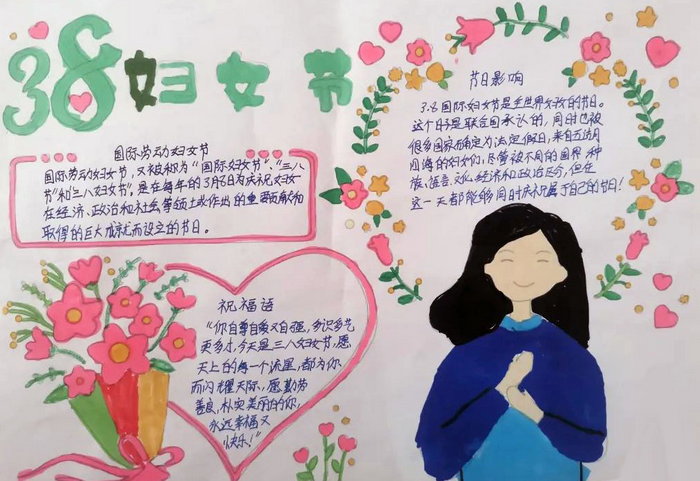 38妇女节
国际劳动妇女节
国际劳动妇女节，又被称为"国际妇女节"、"三八
节"和"三八妇女节"，是在每年的3月8日为庆祝妇女
在经济、政治和社会等领域作出的重要贡献和
取得的巨大成就而设立的节日。
祝福语
"你自尊自爱又自强，多识多艺
更多才，今天是三八妇女节，愿
天上的每一个流星，都为你
而闪耀天际，愿勤劳
善良，朴实美丽的你，
永远幸福又
快乐！"
节日影响
3.8国际妇女节是全世界妇女的节日。
这个日子是联合国承认的，同时也被
很多国家确定为法定假日，来自五湖
四海的妇女们，尽管被不同的国界、种
族、语言、文化、经济和政治区分，但在
这一天都能够同时庆祝属于自己的节日！